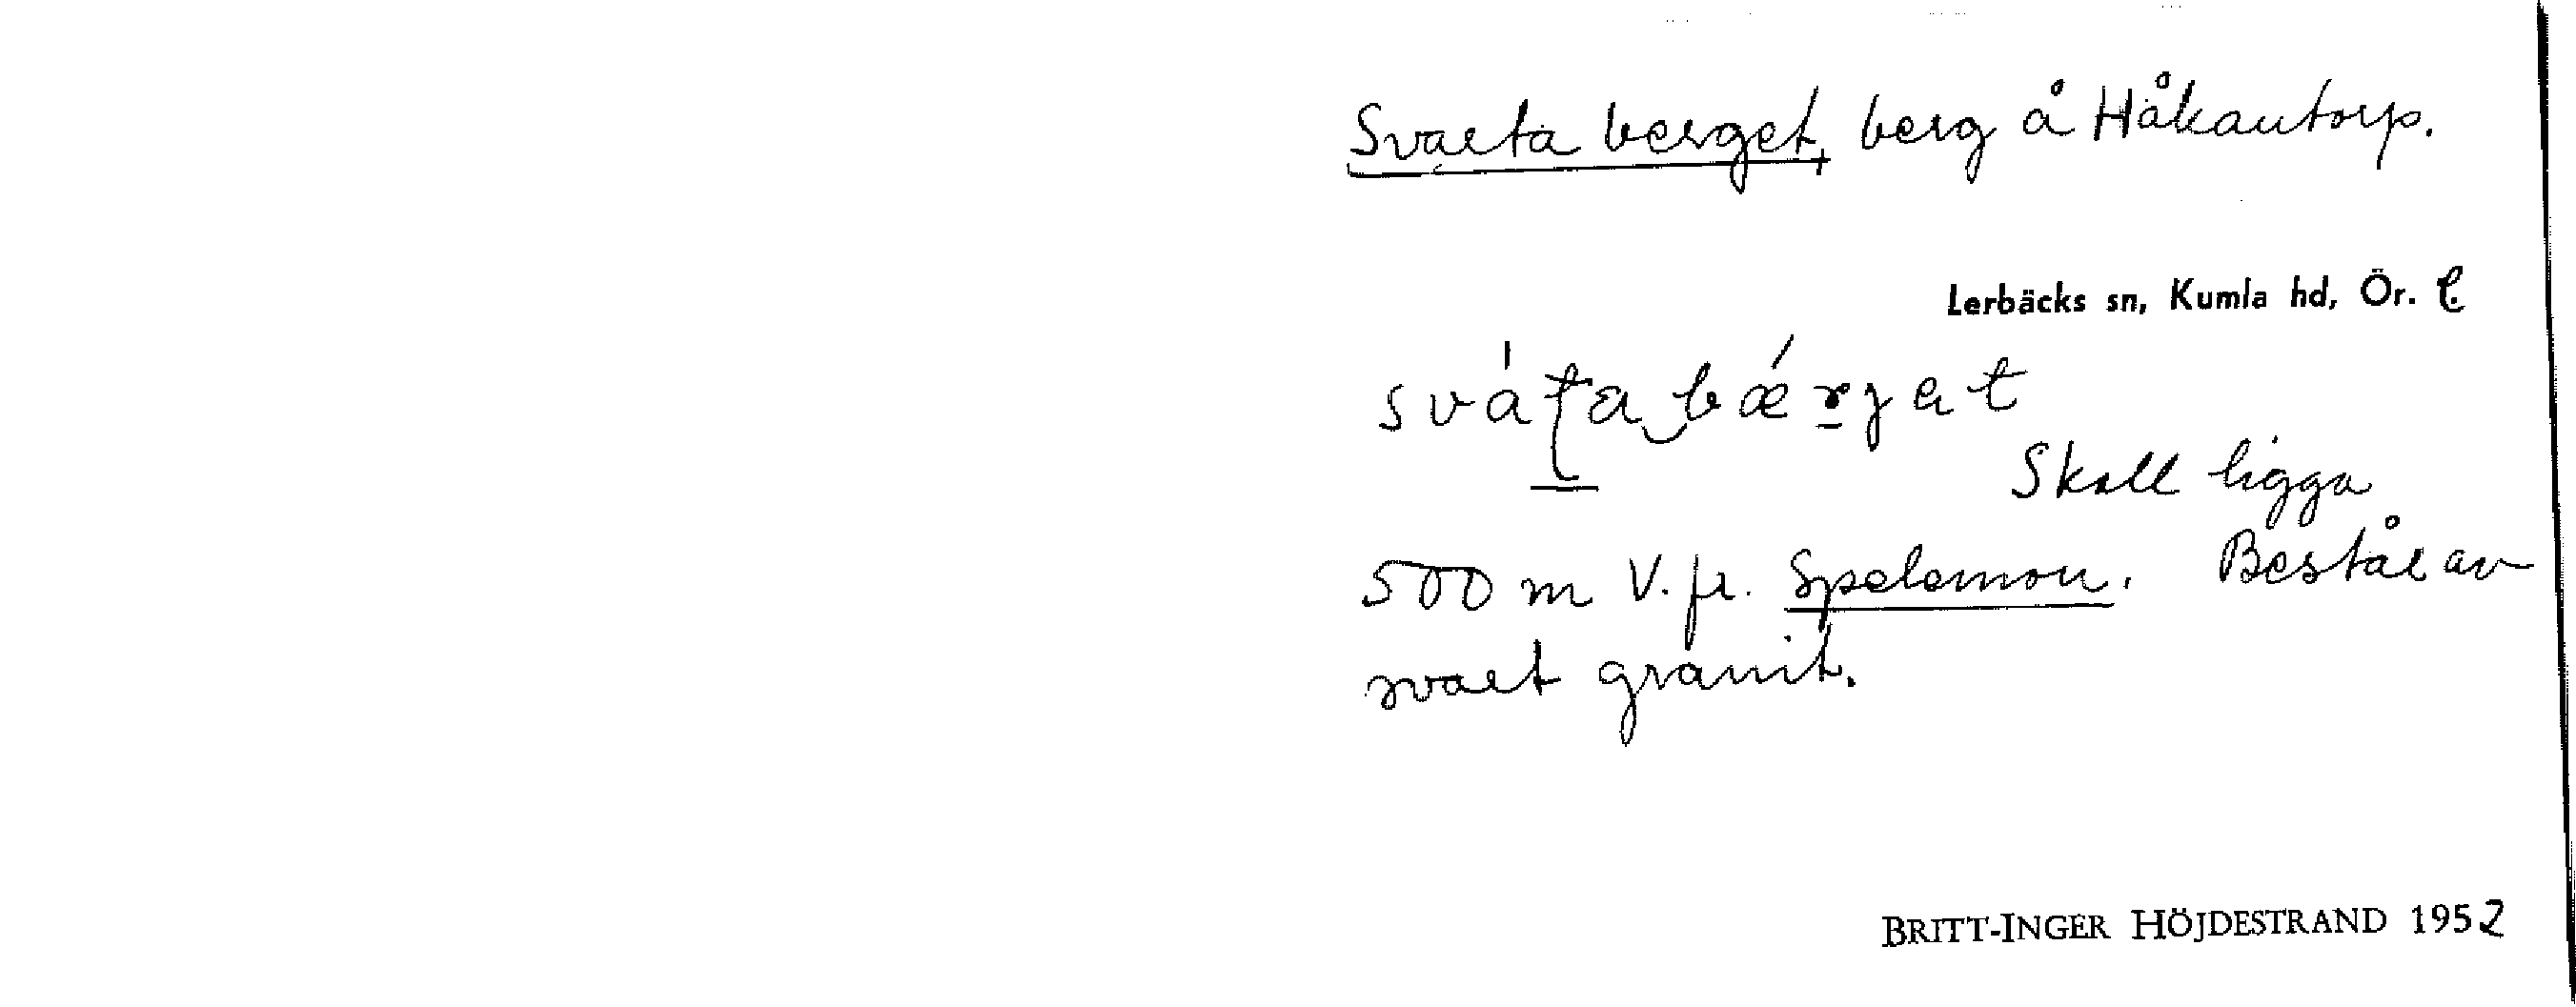 Svarta berget, berg å Håkantorp.
Lerbäcks sn, Kumla hd, Ör. l.
Skall ligga
500 m V. fr. Spelamon. Består av
svart granit.
BRITT-INGER HÖJDESTRAND 1952